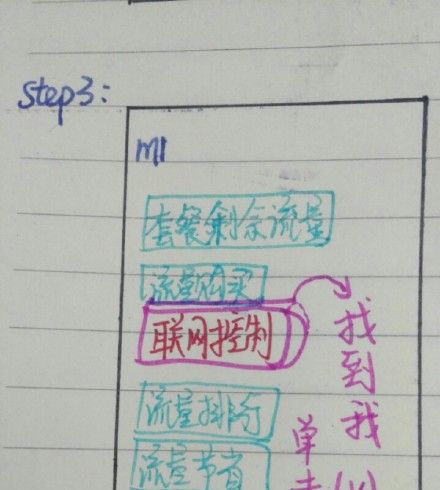 step3:
MI
套餐剩余流量
流量购买
联网控制
流量排行
流量节省
找到我
单击